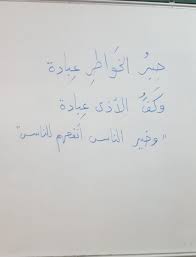 جبرُ الخَواطرِ عِبادة
وَكَفُّ الأذى عِبادة
"وخير الناس أنفعهم للناس"